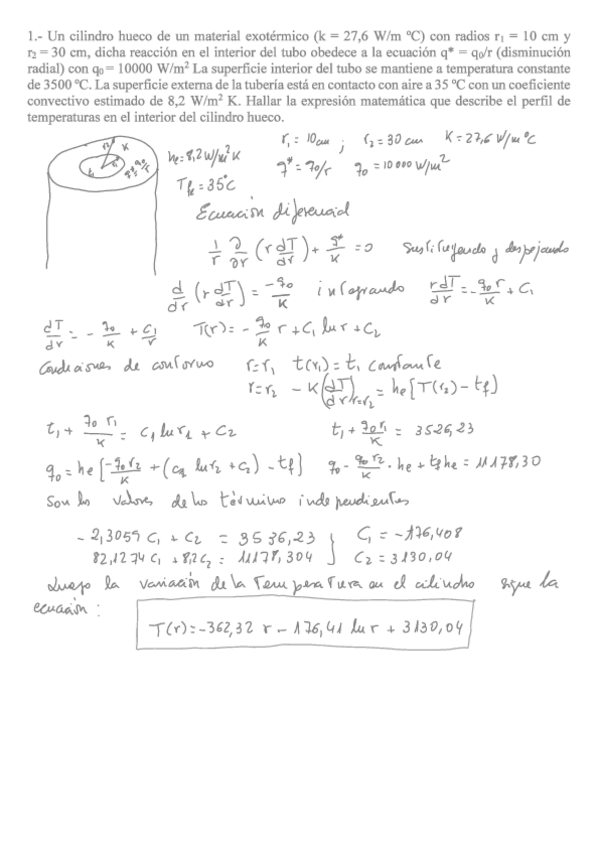 1.- Un cilindro hueco de un material exotérmico (k = 27,6 W/m ºC) con radios r₁ = 10 cm y
r₂ = 30 cm, dicha reacción en el interior del tubo obedece a la ecuación q* = q₀/r (disminución
radial) con q₀ = 10000 W/m² La superficie interior del tubo se mantiene a temperatura constante
de 3500 ºC. La superficie externa de la tubería está en contacto con aire a 35 ºC con un coeficiente
convectivo estimado de 8,2 W/m² K. Hallar la expresión matemática que describe el perfil de
temperaturas en el interior del cilindro hueco.
r₁ = 10cm ; r₂ = 30 cm K = 27,6 W/m ºC
he = 8,2 W/m² K q* = q₀/r q₀ = 10 000 W/m²
Tf = 35ºC
Ecuación diferencial
1/r ∂/∂r (r dT/dr) + q*/K = 0 Sustituyendo y despejando
d/dr (r dT/dr) = -q₀/K integrando r dT/dr = -q₀ r/K + C₁
dT/dr = - q₀/K + C₁/r T(r) = - q₀/K r + C₁ ln r + C₂
Condiciones de contorno r=r₁ t(r₁) = t₁ constante
r=r₂ - K (dT/dr)r=r₂ = he [T(r₂) - tf]
t₁ + q₀ r₁/K = C₁ ln r₁ + C₂ t₁ + q₀r₁/K = 3526,23
q₀ = he [-q₀r₂/K + (C₁ ln r₂ + C₂) - tf] q₀ - q₀r₂/K . he + tf he = 11178,30
Son los valores de los términos independientes
- 2,3059 C₁ + C₂ = 3536,23 } C₁ = -176,408
82,1274 C₁ + 8,2 C₂ = 11178,304 } C₂ = 3130,04
Luego la variación de la Temperatura en el cilindro sigue la
ecuación :
T(r) = -362,32 r - 176,41 ln r + 3130,04